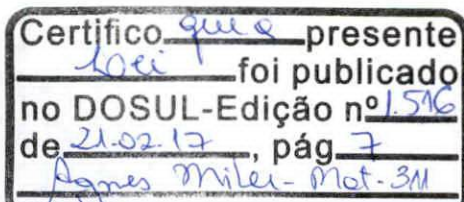 Certifico que a presente
Lei foi publicado
no DOSUL-Edição nº 1.516
de 21.02.17, pág 7
Agnes Miler - Mat - 311